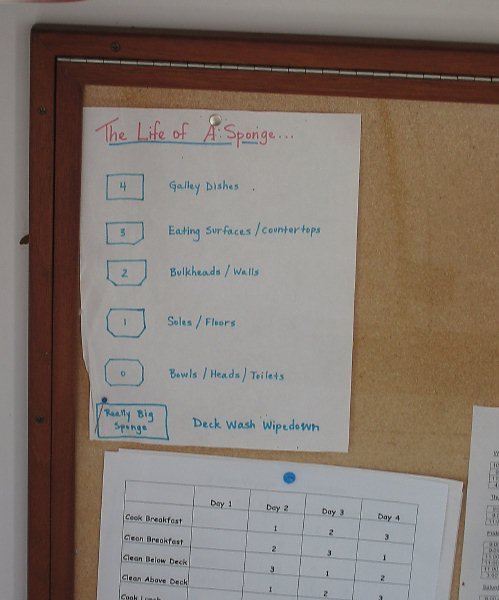 The Life of A Sponge...
4 Galley Dishes
3 Eating Surfaces / Countertops
2 Bulkheads / Walls
1 Soles / Floors
0 Bowls / Heads / Toilets
Really Big
Sponge
Deck Wash Wipedown
Day 1 Day 2 Day 3 Day 4
Cook Breakfast 1 2 3
Clean Breakfast 2 3 1
Clean Below Deck 3 1 2
Clean Above Deck 1 2 3
Cook Lunch